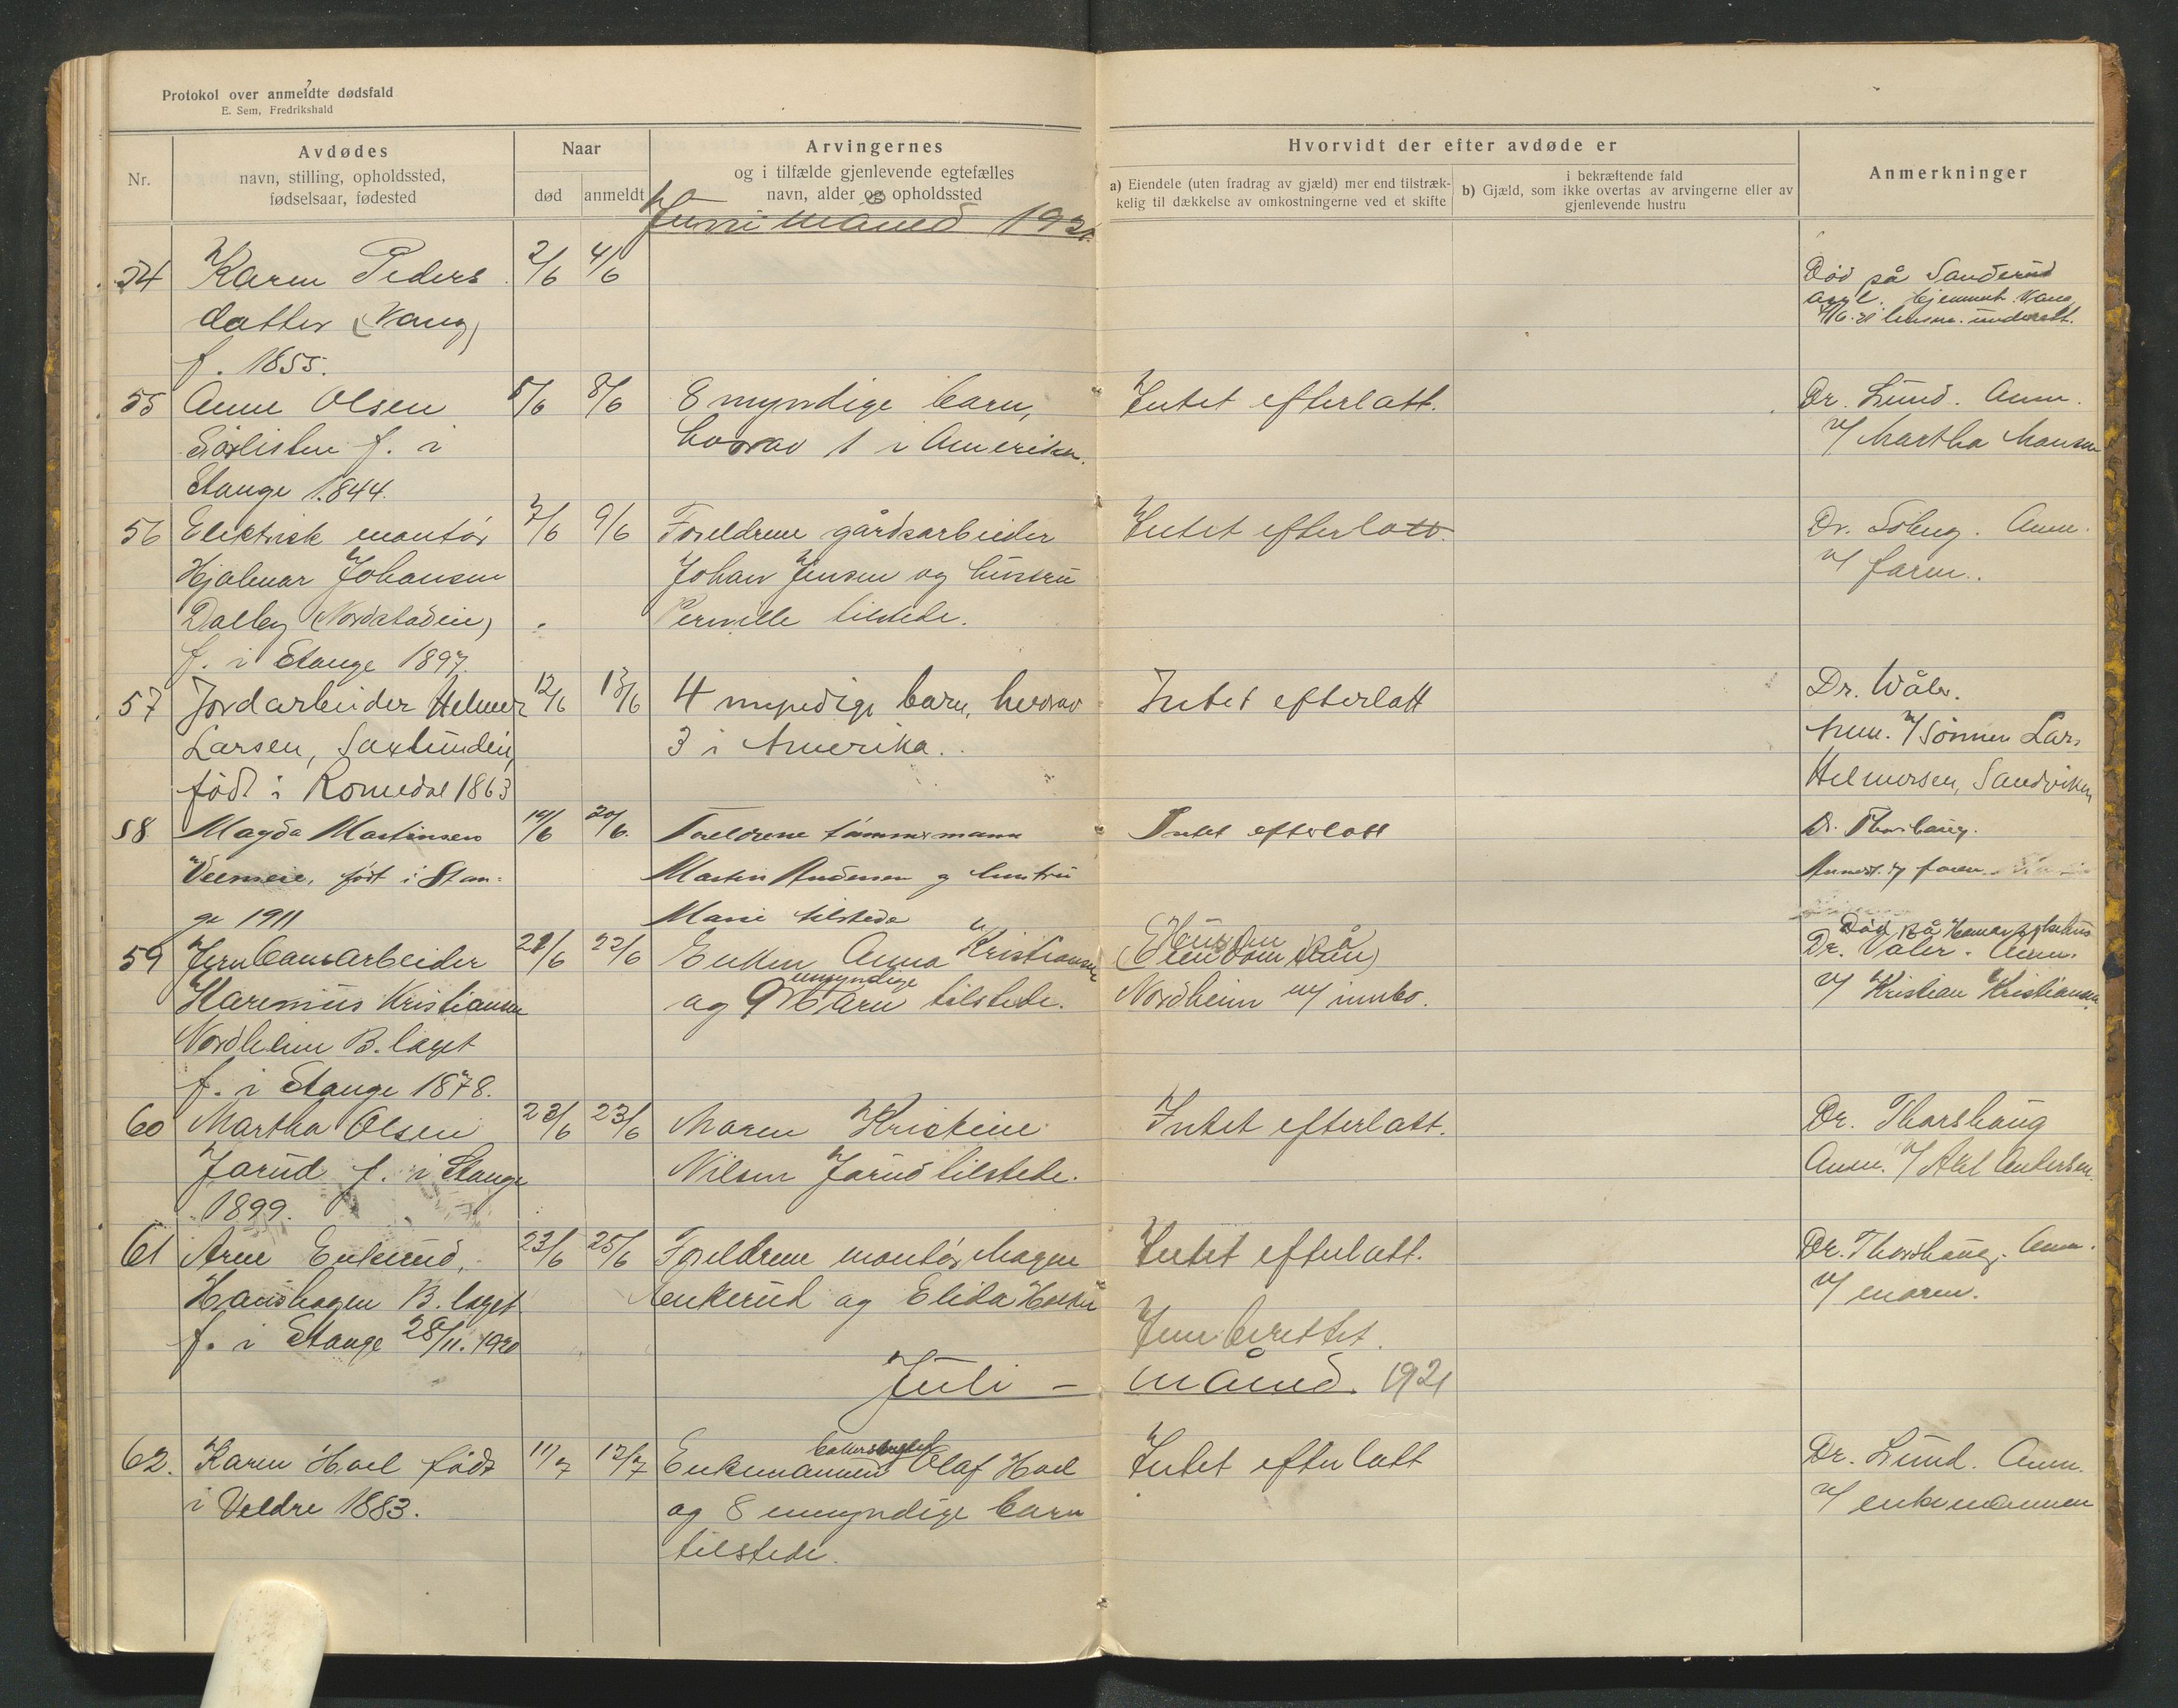 Protokol over anmeldte dødsfald
E. Sem, Fredrikshald
Nr.
Avdødes
navn, stilling, opholdssted,
fødselsaar, fødested
Naar
død
anmeldt
Arvingernes
og i tilfælde gjenlevende egtefælles
navn, alder og opholdssted
Hvorvidt der efter avdøde er
a) Eiendele (uten fradrag av gjæld) mer end tilstræk-
kelig til dækkelse av omkostningerne ved et skifte
i bekræftende fald
b) Gjæld, som ikke overtas av arvingerne eller av
gjenlevende hustru
Anmerkninger
Juni måned 1921
54 Karen Peders 2/6 4/6 Død på Sanderud
datter (Vang) asyl. hjemmeh. Vang
underett.
f. 1855.
55 Anne Olsen 5/6 8/6 8 myndige barn, Intet efterlatt. Dr. Lund. Anm.
f. i hvorav 1 i Amerika. v/ Martha Hansen
Stange 1844.
56 Elektrisk montör 7/6 9/6 Foreldrene gårdsarbeider Intet efterlatt. Dr. Anm.
Hjalmar Johansen Johan Jensen og hustru v/ faren.
Dalby (Nordstadeie) Pernille tilstede.
f. i Stange 1897.
57 Jordarbeider Helmer 12/6 13/6 4 myndige barn, hvorav Intet efterlatt Dr. Wåler.
Larsen, Saxlundeie, 3 i Amerika. Anm. v/ sönnen Lars
född i Romedal 1863 Helmersen, Sandviken
58 Magda Martinsen 19/6 20/6. Foreldrene tömmermann Intet efterlatt Dr. Thorshaug.
født i Stan- Martin Andersen og hustru Anmeldt v/ faren
ge 1911 Marie tilstede
Død på Hamar sykehus
59 Jernbanearbeider 21/6 22/6 Enken Anna Kristiansen (Eiendom Dr. Våler. Anm.
Haremius Kristiansen og 9 umyndige barn tilstede. Nordheim m/ innbo. v/ Kristian Kristiansen
Nordheim B. laget
f. i Stange 1878.
60 Martha Olsen 23/6 23/6 Maren Kristine Intet efterlatt. Dr. Thorshaug
Jarud f. i Stange Nilsen Jarud tilstede. Anm. v/ Andersen.
1899.
61 Arne Enkerud, 23/6 25/6 Foreldrene montör Magne Intet efterlatt. Dr. Thorshaug. Anm.
B. laget Enkerud og Elida v/ moren.
f. i Stange 28/11. 1920 Innberettet.
Juli – måned. 1921
62. Karen Hoel född 11/7 12/7 Enkemannen Olaf Hoel Intet efterlatt Dr. Lund. Anm.
i Veldre 1883. og 8 umyndige barn v/ enkemannen
tilstede.